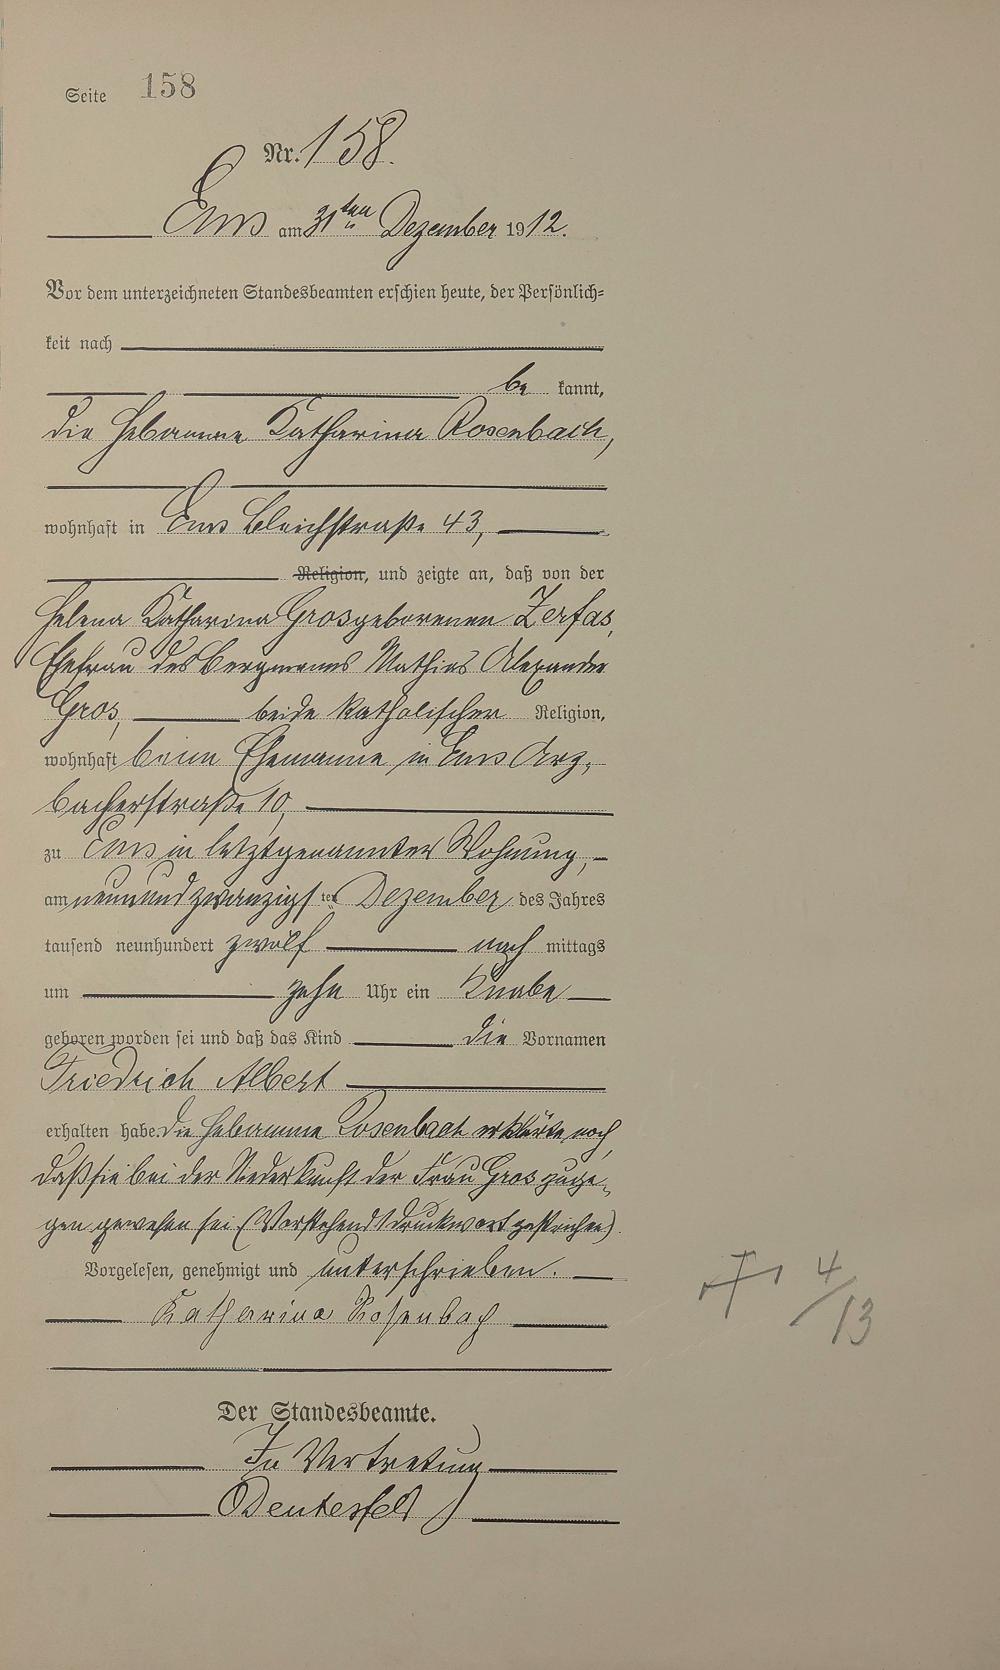 Seite 158
Nr. 158.
Ems am 31ten Dezember 1912.
Vor dem unterzeichneten Standesbeamten erschien heute, der Persönlich=
keit nach
be kannt,
die Hebamme Katharina Rosenbach,
wohnhaft in Ems Bleichstraße 43,
Religion, und zeigte an, daß von der
Helena Katharina Gros geborenen Zerfas,
Ehefrau des Bergmanns Mathias Alexander
Gros, beide katholischer Religion,
wohnhaft beim Ehemanne in Ems Arz-
bacherstraße 10,
zu Ems in letztgenannter Wohnung,
am neunundzwanzigsten Dezember des Jahres
tausend neunhundert zwölf nach mittags
um zehn Uhr ein Knabe
geboren worden sei und daß das Kind die Vornamen
Friedrich Albert
erhalten habe. Die Hebamme Rosenbach erklärte noch,
daß sie bei der Niederkunft der Frau Gros zuge-
gen gewesen sei (Vorstehend 1 Druckwort gestrichen).
Vorgelesen, genehmigt und unterschrieben.
Katharina Rosenbach
4/13
Der Standesbeamte.
In Vertretung